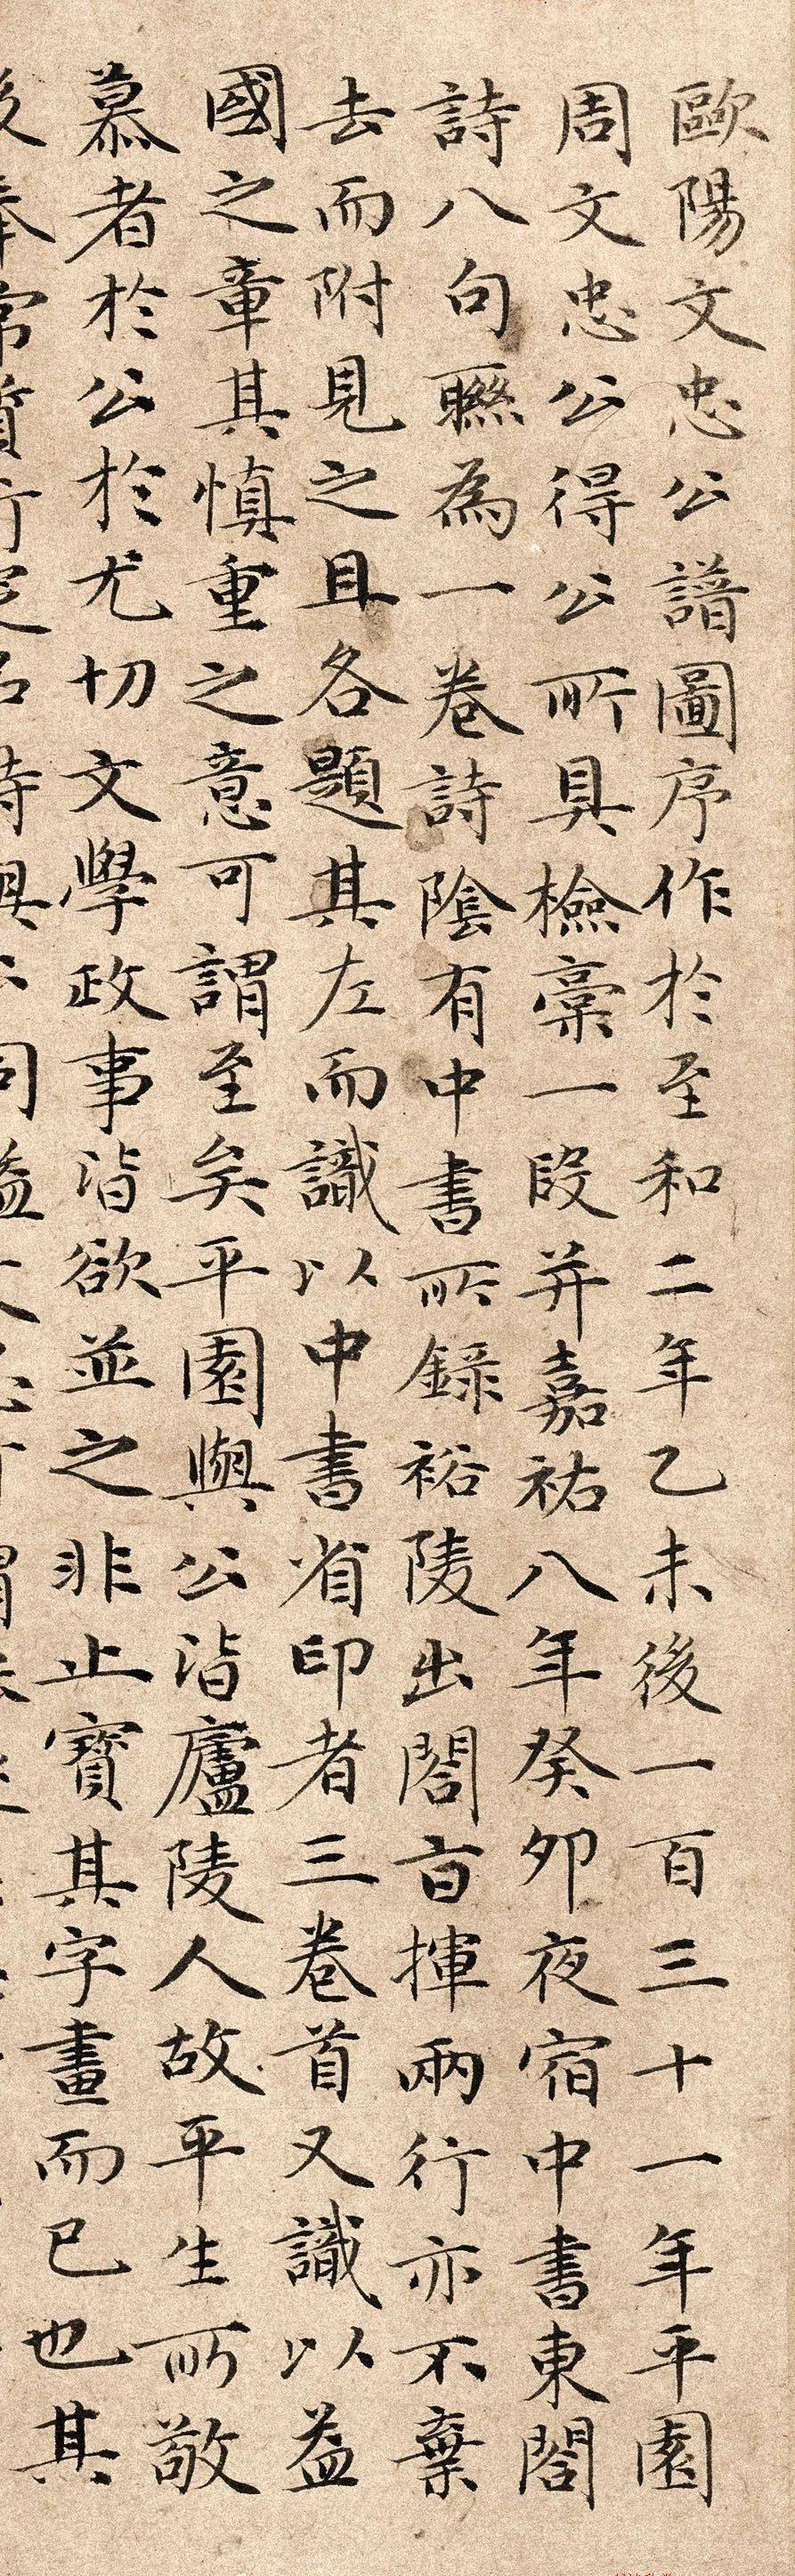 歐陽文忠公譜圖序作於至和二年乙未後一百三十一年平園
周文忠公得公所具檢稾一段并嘉祐八年癸卯夜宿中書東閤
詩八句聮為一卷詩陰有中書所錄裕陵出閤百揮兩行亦不棄
去而附見之且各題其左而識以中書省印者三卷首又識以益
國之章其慎重之意可謂至矣平園與公皆廬陵人故平生所敬
慕者於公於尤切文學政事皆欲並之非止寶其字畫而已也其